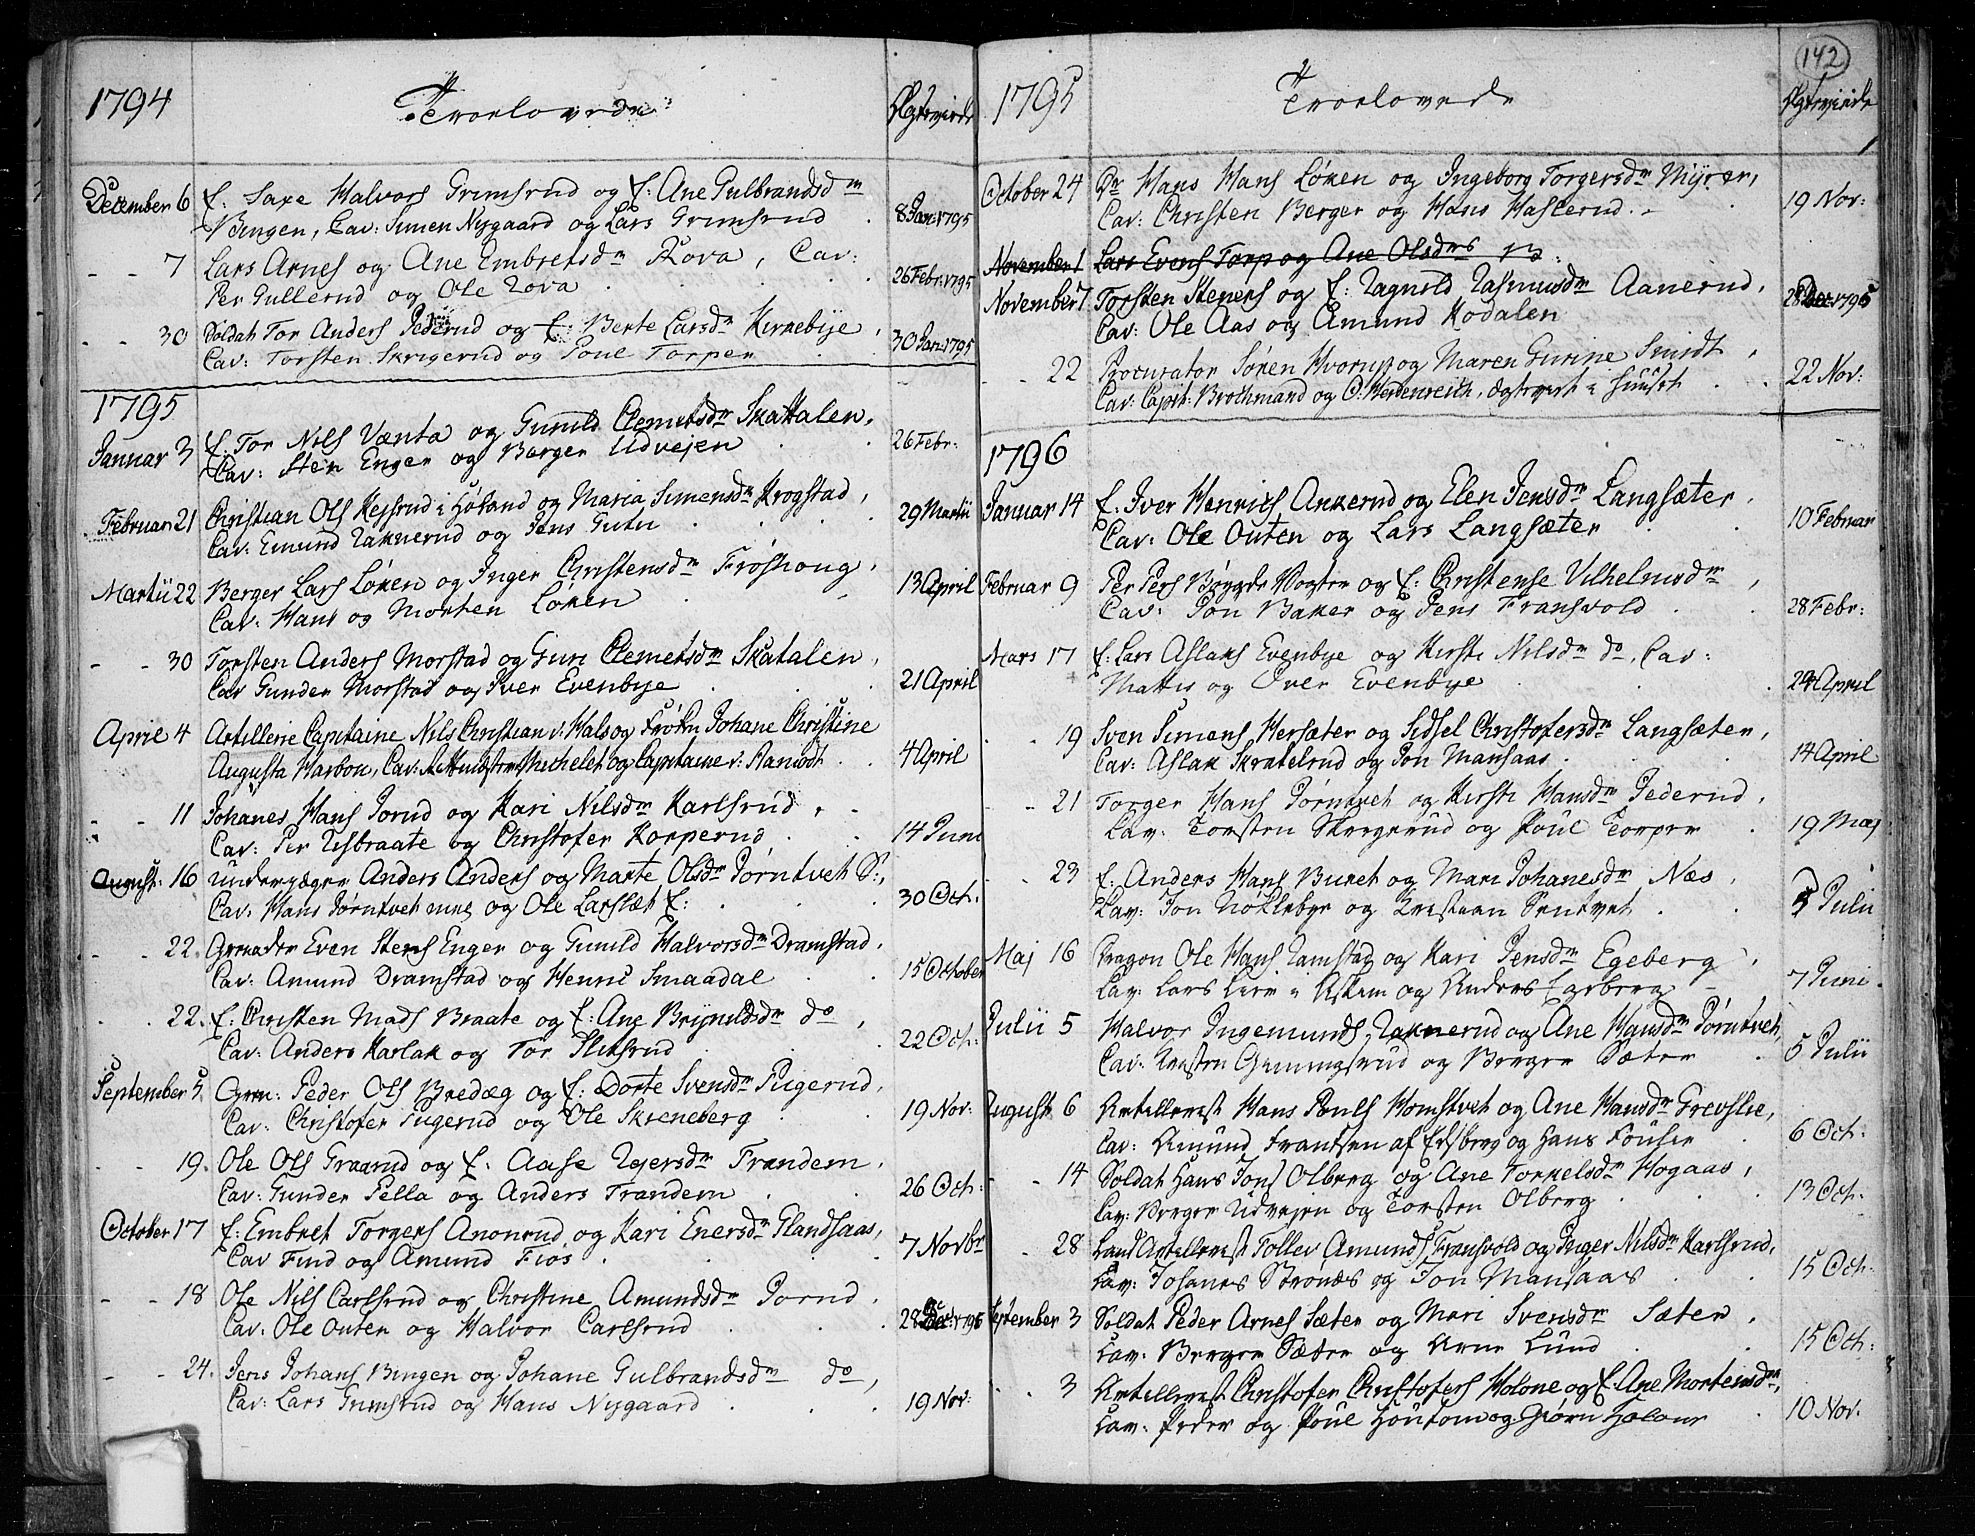 1794 Troelovede Ægtewiede
December 6 f: Saxe Halvors Grimsrud og f: Ane Gulbrandsdr
Bingen, Cav: Simen Nygaard og Lars Grimsrud 8 Jan: 1795
- - 7 Lars Arnes og Ane Embretsdr Rova, Cav:
Per Gullerud og Ole Rova 26 Febr: 1795
- - 30 Soldat Tor Anders Pederud og f: Berte Larsdr Kirkebye,
Cav: Torsten Skrigerud og Poul Torper 30 Jan: 1795
1795
Januar 3 f. Tor Nils Vænta og Gunild Clemetsdr Skattalen,
Cav: Sten Enger og Barger Udvejen 26 Febr:
Februar 21 Christian Ols Hejsrud i Høland og Maria Simensdr Krogstad,
Cav: Emund Raknerud og Jens Gutu 29 Martii
Martii 22 Berger Lars Løken og Inger Christensdr Frøshoug,
Cav: Hans og Morten Løken 13 April
- - 30 Torsten Anders Morstad og Guri Clemetsdr Skatalen,
Cav Gunder Morstad og Iver Evenbye 21 April
April 4 Artillerie Capitaine Nils Christian v: Hals og Frøkn Johane Christine
Augusta Harbou, Cav: Rittmester Michelet og Capitaine v: Ramodt 4 April
- - 11 Johanes Hans Jorud og Kari Nilsdr Karlsrud,
Cav: Per Risbraate og Christofer Korperud 14 Juni
August: 16 Underjæger Anders Anders og Marte Olsdr Jørntvet S:,
Cav: Hans Jørntvet og Ole Larslæt f: 30 Oct:
- - 22. Grenader Even Stens Enger og Gunild Halvorsdr Dramstad,
Cav: Amund Dramstad og Henric Smaadal 15 October
- - 22. f: Christen Mads Braate og f: Ane Brynildsdr do,
Cav: Anders Harlak og Tor Sletsrud 22 Oct:
September 5. Gren: Peder Ols Bredæg og f: Dorte Svensdr Pugerud,
Cav: Christofer Pugerud og Ole Skreneberg 19 Nov:
- - 19. Ole Ols Graarud og f: Aase Rejersdr Trandem,
Cav: Gunder Sella og Anders Trandem 26 Oct:
October 17 f: Embret Torgers Anonrud og Kari Enersdr Flandsaas,
Cav Find og Amund Fios 7 Novbr
- - 18 Ole Nils Carlsrud og Christine Amundsdr Jorud,
Cav: Ole Outen og Halvor Carlsrud 28 Dec: 1795
- - 24. Jens Johans Bingen og Johane Gulbrandsdr do,
Cav: Lars Grimsrud og Hans Nygaard 19 Nov:
142
1795 Troelovede Ægtewiede
October 24 Dr Hans Hans Løken og Ingeborg Torgersdr Myrer,
Cav: Christen Berger og Hans Haslerud 19 Nov:
November 1 Lars Evens Torp og Ane Olsdr
November 7 Torsten Steners og f: Ragnild Rasmusdr Aanerud,
Cav: Ole Aas og Amund Kodalen 28 Dec: 1795
- - 22 Procurator Søren Hvorup og Maren Gurine Smidt,
Cav: Capit: Brochmand og C: Herdenreich, ægteviet i Huuset 22 Nov:
1796
Januar 14 f. Iver Henrics Ankerud og Elen Jensdr Langsæter
Cav: Ole Outen og Lars Langsæter 10 Februar
Februar 9 Per Pers Bøgede Vogter og f: Christense Vilhelmsdr,
Cav: Jon Baker og Jens Fransvold 28 Febr:
Mars 17 f. Lars Aslaks Evenbye og Kirsti Nilsdr do, Cav:
Mattis og Over Evenbye 24 April
- - 19 Sven Simens Hersæter og Sidsel Christofersdr Langsæter,
Cav: Aslak Skratelrud og Jon Mansaas 14 April
- - 21 Torger Hans Jørntvet og Kirsti Hansdr Pederud,
Cav: Torsten Skrigerud og Poul Torper 19 Maj
- - 23 f. Anders Hans Buret og Mari Johanesdr Næs,
Cav: Jon Nøklebye og Kristian Sentvet 3 Julii
Maj 16 Dragon Ole Hans Ramstad og Kari Jensdr Egeberg,
Cav: Lars Lier i Askim og Anders Egeberg 7 Juni
Julii 5 Halvor Ingemunds Raknerud og Ane Hansdr Jørntvet,
Cav: Kresten Gimingsrud og Berger Sæter 5 Julii
August 6 Artillerist Hans Pouls Homstvet og Ane Hansdr Grevslie,
Cav: Amund Frantsen af Edsberg og Hans Fousle 6 Oct:
- - 14 Soldat Hans Jons Olberg og Ane Torkelsdr Hogaas,
Cav: Berger Udvejen og Torsten Olberg 13 Oct:
- - 28 Land Artillerist Tollev Amunds Fransvold og Inger Nilsdr Karlsrud,
Cav: Johanes Strønæs og Jon Mansaas 15 Oct:
September 3 Soldat Peder Arnes Sæter og Mari Svensdr Sæter,
Cav: Berger Sæter og Arne Lund 15 Oct:
- - 3 Artillerist Christofer Christofers Holone og f: Ane Mortensdr,
Cav: Peder og Poul Houtom og Giørn Holone 10 Nov: